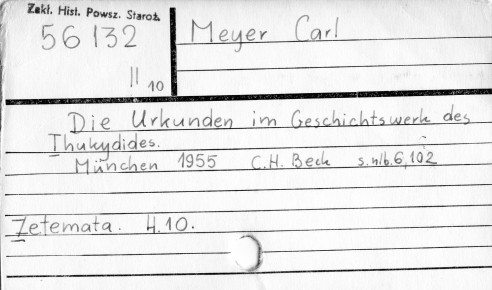 Zakł. Hist. Powsz. Staroż.
56132
II 10
Meyer Carl
Die Urkunden im Geschichtswerk des
Thukydides.
München 1955 C.H. Beck s. nlb. 6, 102
Zetemata. H. 10.